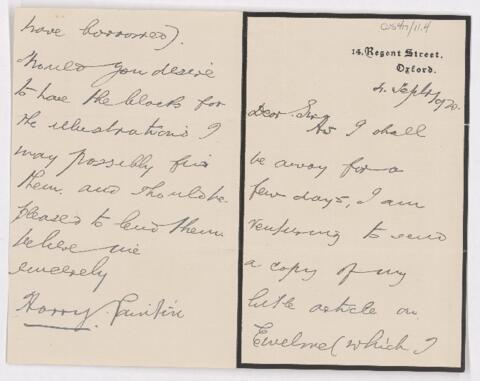 14, Regent Street,
Oxford.
4. Sept. 1920.
Dear Sir
As I shall
be away for a
few days, I am
venturing to send
a copy of my
little article on
Ewelme (which I
have borrowed).
Should you desire
to have the blocks for
the illustrations I
may possibly find
them. and should be
pleased to lend them.
believe me
sincerely
Harry Paintin